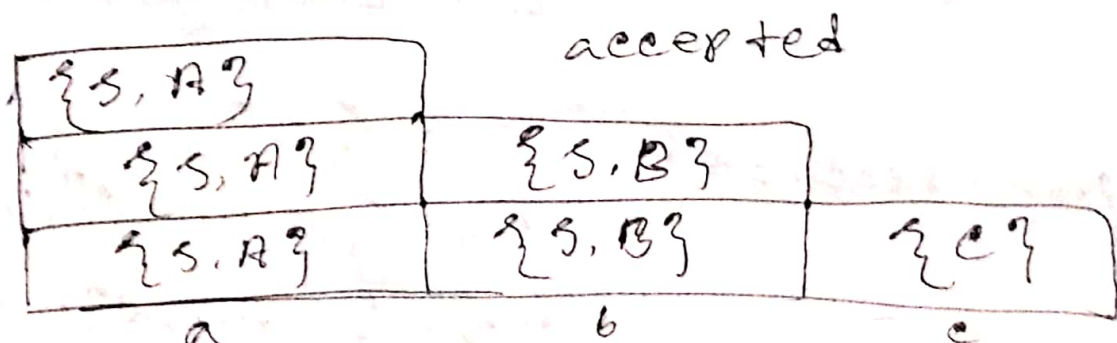 accepted
{S, A}
{S, A} {S, B}
{S, A} {S, B} {C}
a b c